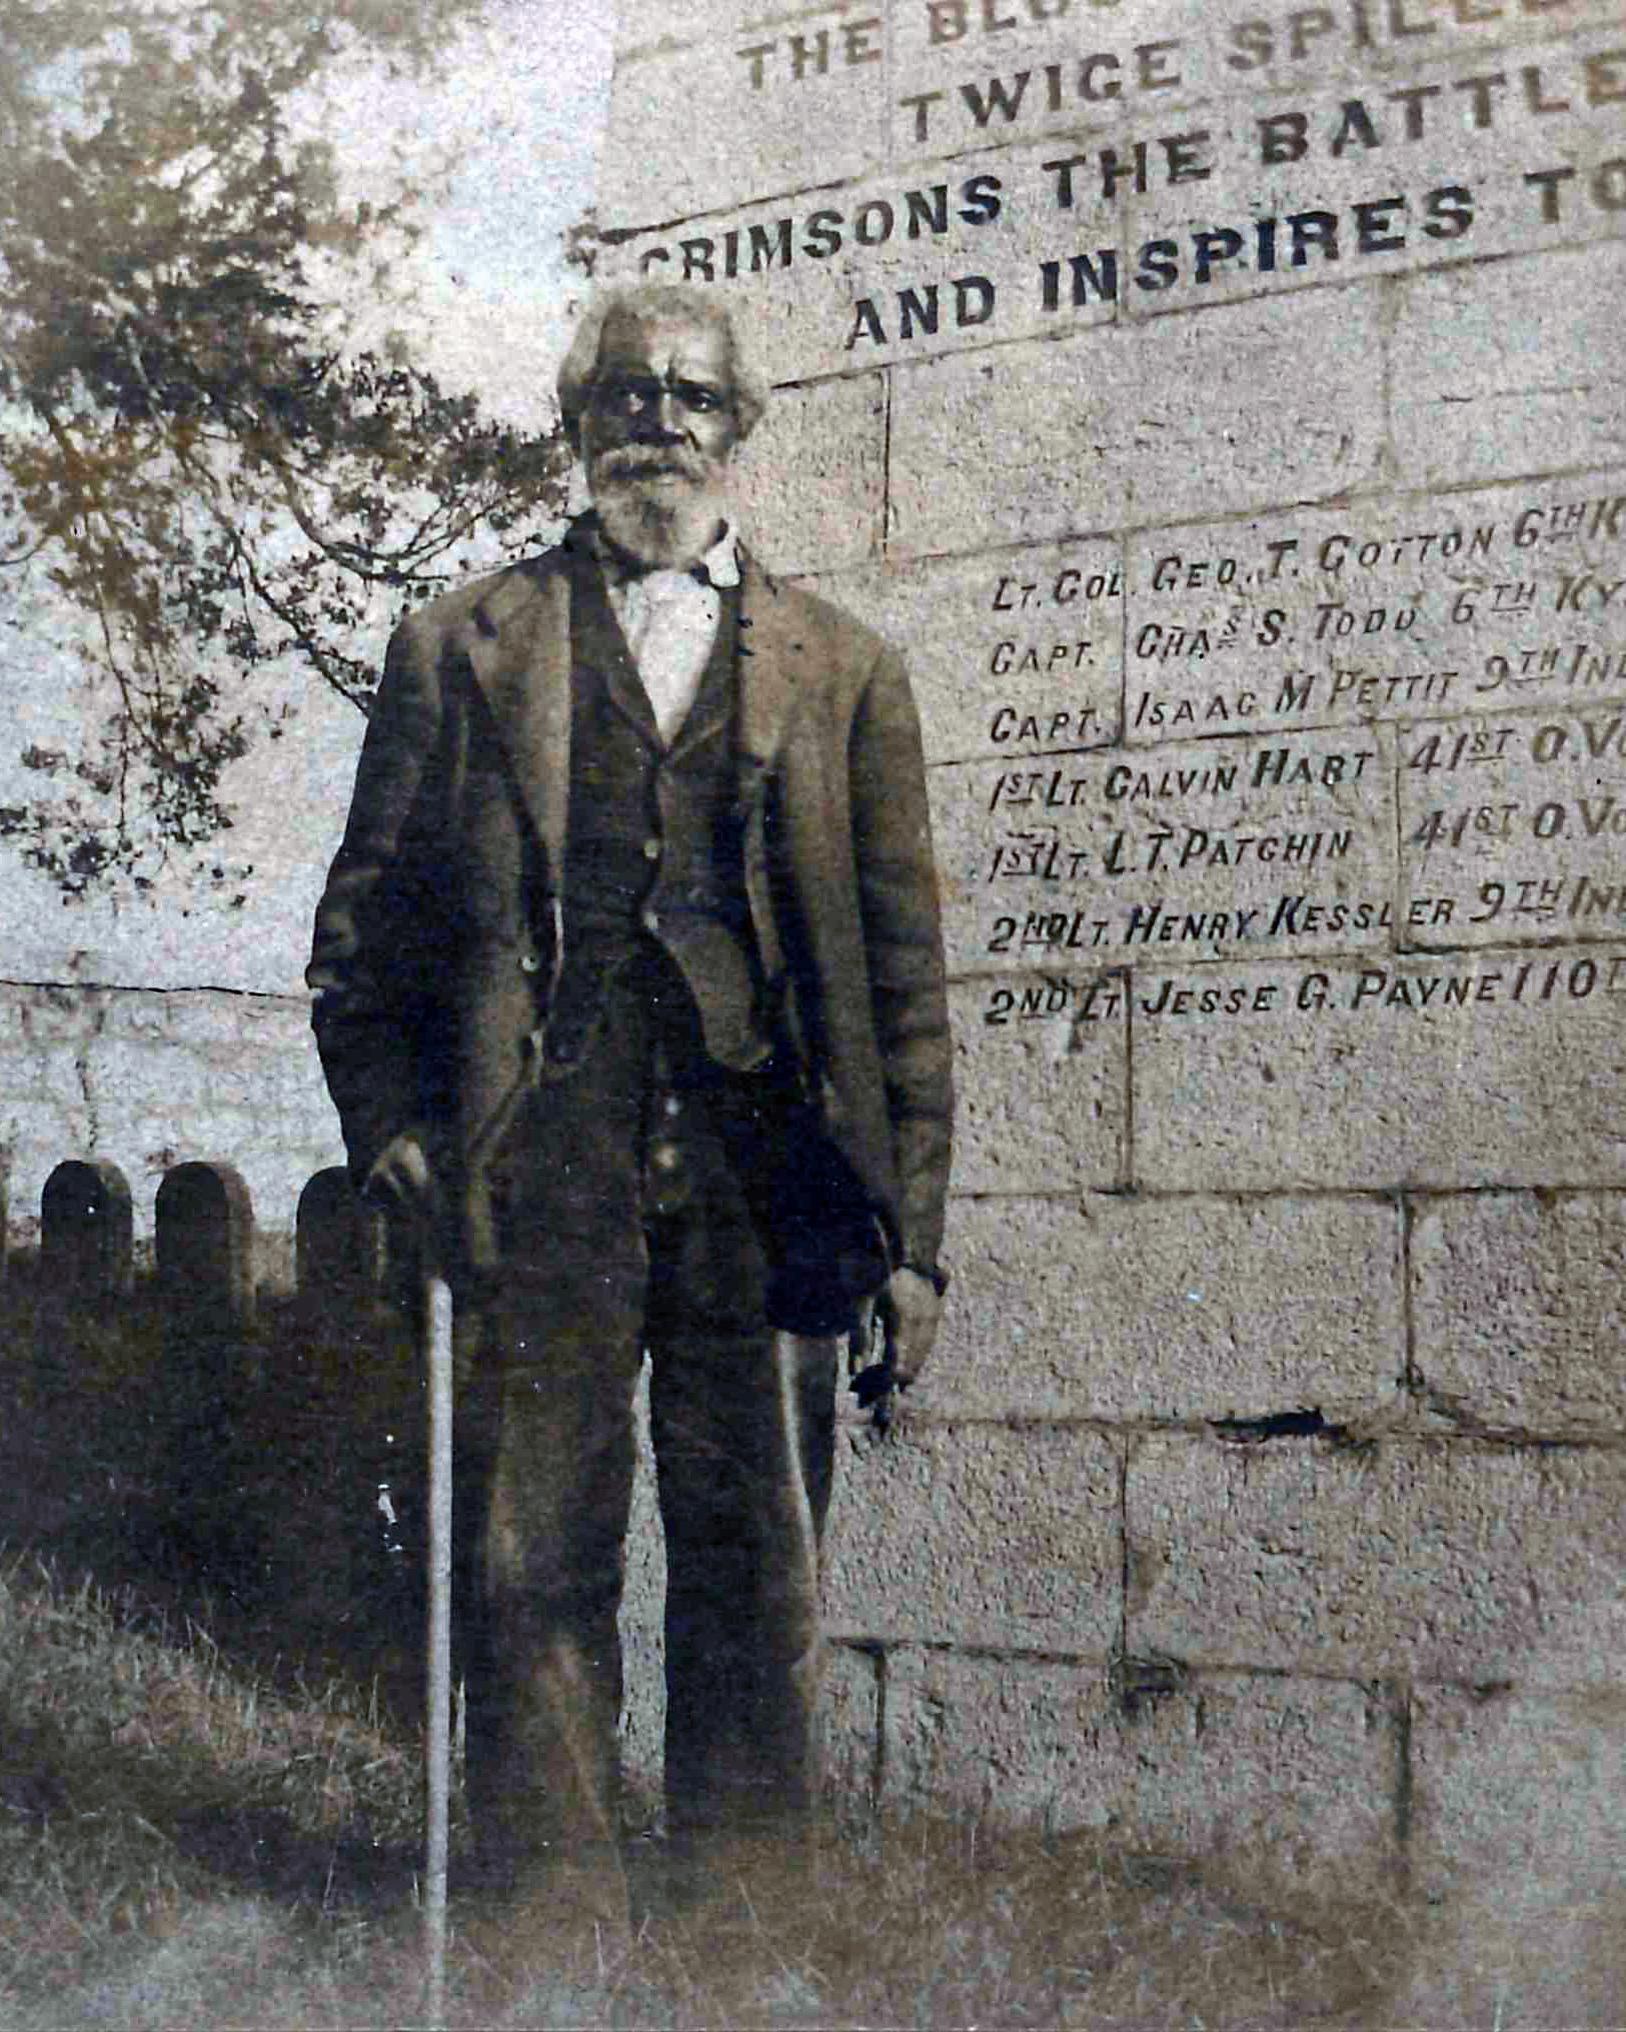 THE
TWICE
CRIMSONS THE BATTLE
AND INSPIRES TO
LT. COL. GEO. T. COTTON 6TH K
CAPT. CHAS S. TODD 6TH KY.
CAPT. ISAAC M PETTIT 9TH IND
1ST LT. CALVIN HART 41ST O. VO
1ST LT. L. T. PATCHIN 41ST O. VO
2ND LT. HENRY KESSLER 9TH IND
2ND LT. JESSE G. PAYNE 110T